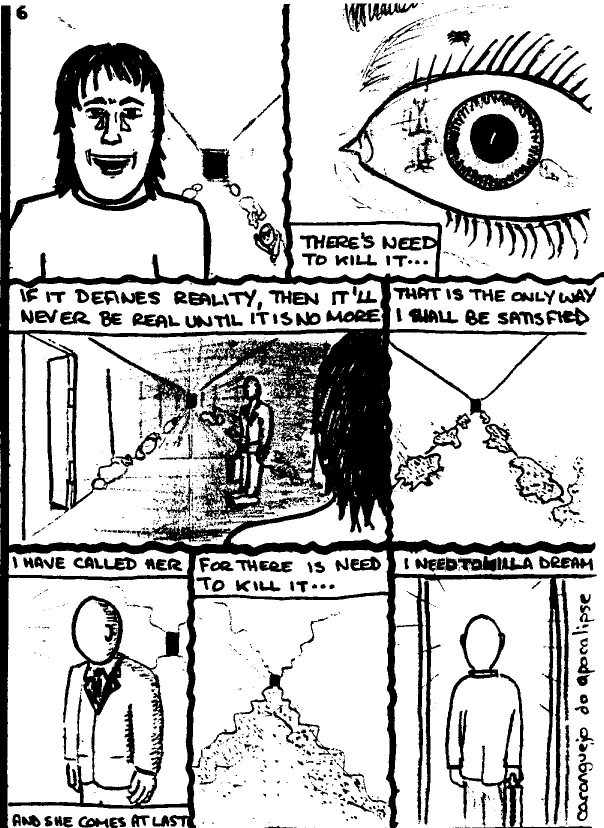 6
THERE'S NEED
TO KILL IT...
IF IT DEFINES REALITY, THEN IT'LL
NEVER BE REAL UNTIL IT IS NO MORE
THAT IS THE ONLY WAY
I SHALL BE SATISFIED
I HAVE CALLED HER
AND SHE COMES AT LAST
FOR THERE IS NEED
TO KILL IT...
I NEED TO KILL A DREAM
caranguejo do apocalipse